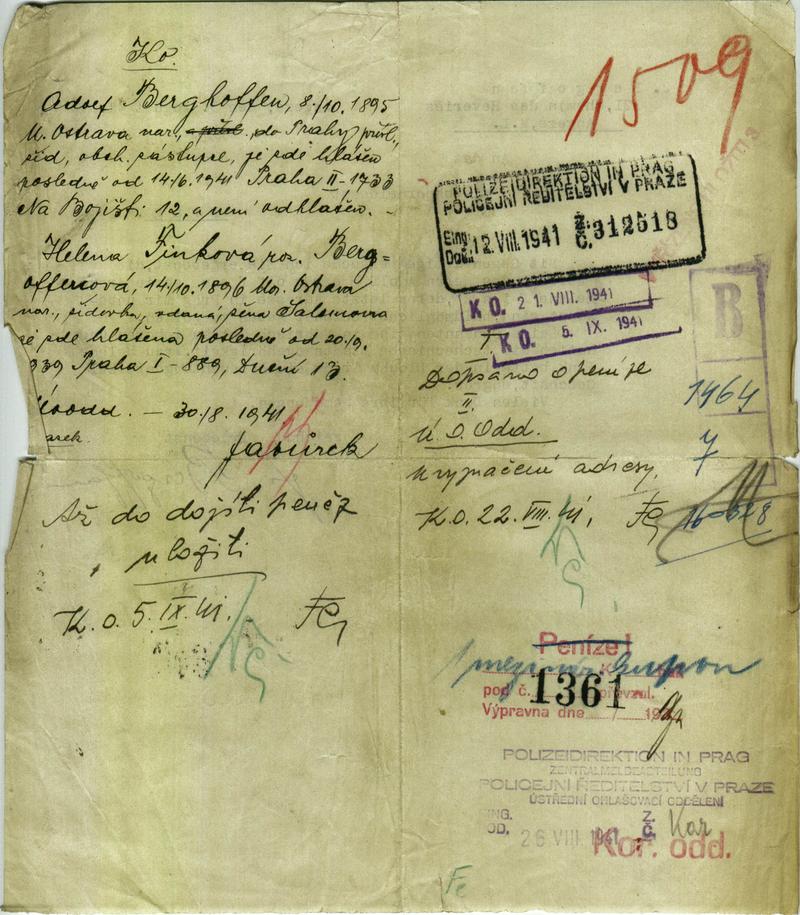 Ko.
Adolf Berghoffen, 8./10. 1895
M. Ostrava nar., do Prahy přísl.,
žid, obch. zástupce, je zde hlášen
posledně od 14/6. 1941 Praha II-1733
Na Bojišti 12, a není odhlášen. -
Helena Finková roz. Berg=
offenová, 14/10. 1896 Mor. Ostrava
nar., židovka, vdaná, žena Salomona
je zde hlášena posledně od 20./9.
939 Praha I-889, Dušní 13.
odd. - 30./8. 1941
Javůrek
Až do dojití peněz
uložiti
K. o. 5. IX. 41.
1509
POLIZEIDIREKTION IN PRAG
POLICEJNÍ ŘEDITELSTVÍ V PRAZE
Eing. Došlo 12. VIII. 1941 Z. Č. 312518
KO. 21. VIII. 1941
KO. 5. IX. 1941
B
I.
Dopsáno o peníze
II.
Ú. O. Odd.
k vyznačení adresy.
K. o. 22. VIII. 41,
1464
7
Peníze!
pod č. 1361 převzal.
Výpravna dne / 194
POLIZEIDIREKTION IN PRAG
ZENTRALMELDEABTEILUNG
POLICEJNÍ ŘEDITELSTVÍ V PRAZE
ÚSTŘEDNÍ OHLAŠOVACÍ ODDĚLENÍ
ING. OD. 26 VIII. 1941 Z. Č. Kor
Koř. odd.